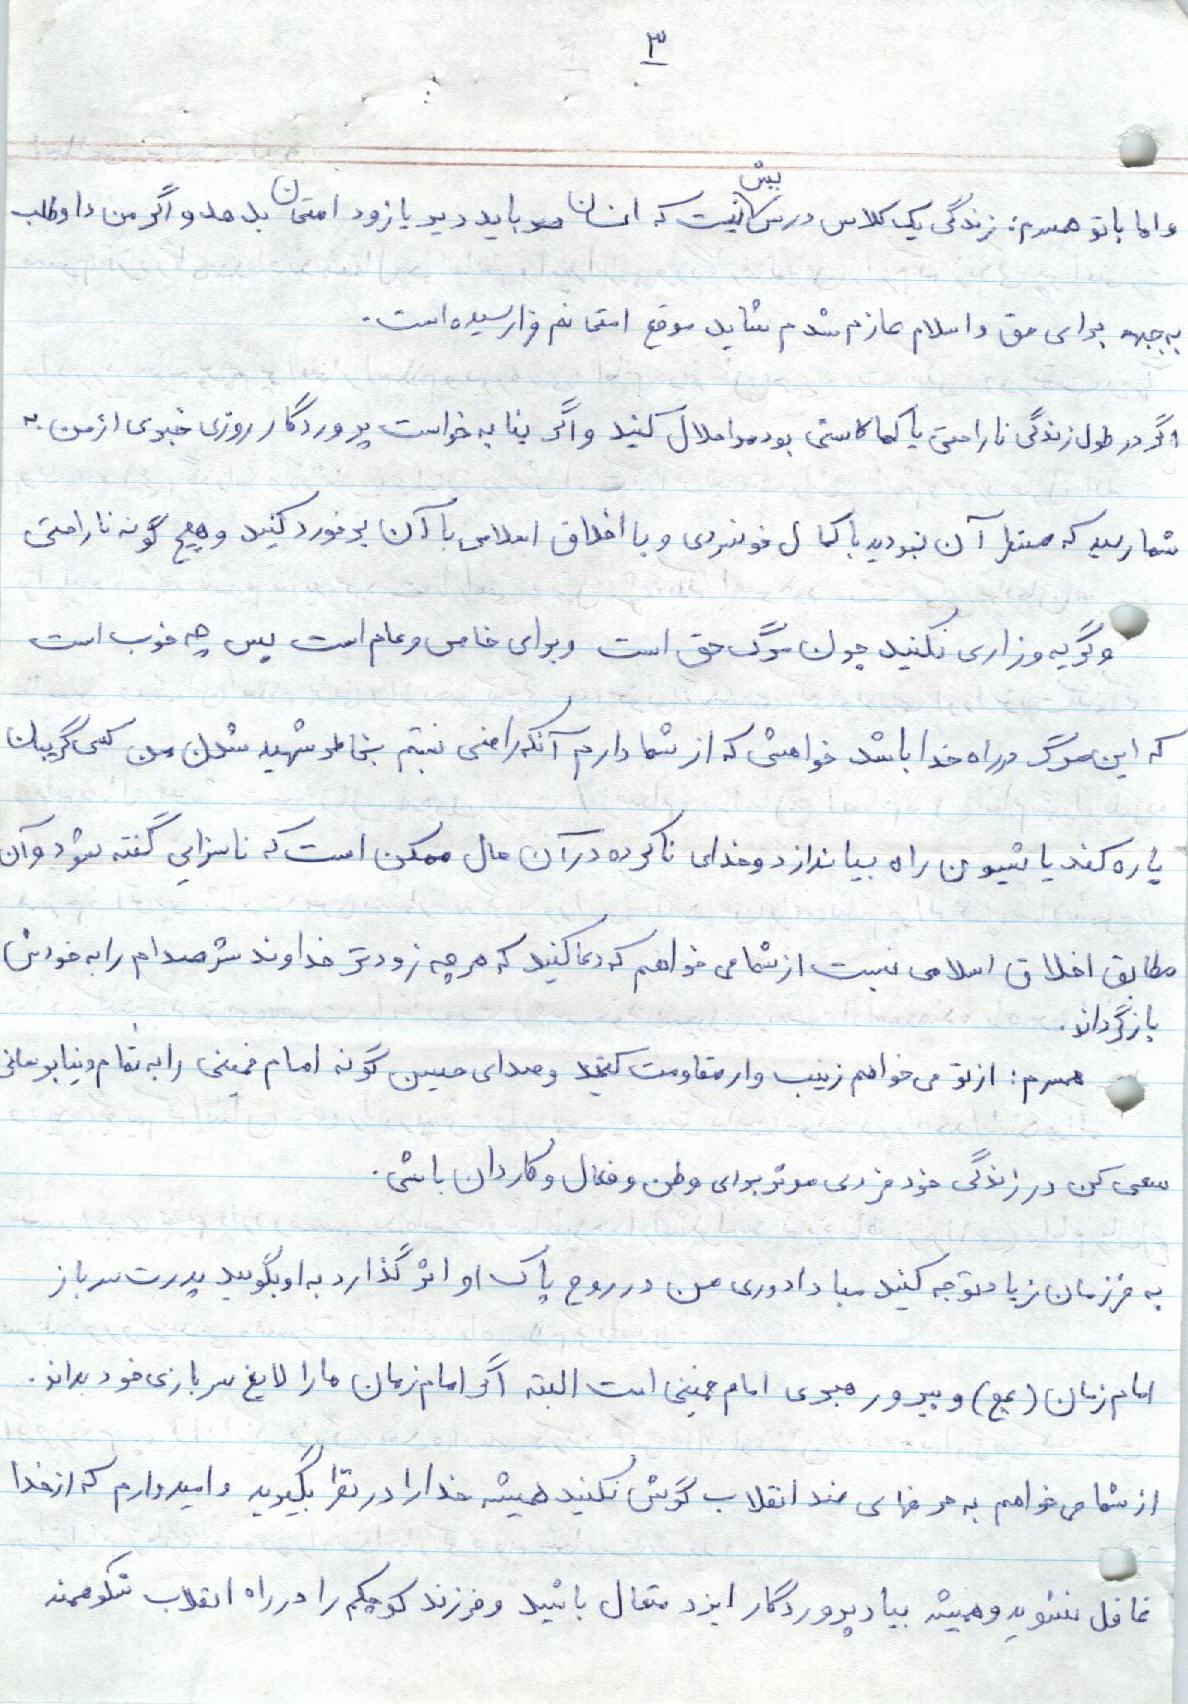 ۳
و اما با تو همسرم: زندگی یک کلاس درس بیش نیست که انسان باید دیر یا زود امتحان بدهد و اگر من داوطلب
به جبهه برای حق و اسلام عازم شدم شاید موقع امتحانم فرا رسیده است.
اگر در طول زندگی ناراحتی یا کما کاستی بود مرا حلال کنید و اگر بنا به خواست پروردگار روزی خبری از من به
شما رسید که منتظر آن نبودید با کمال خونسردی و با اخلاق اسلامی با آن برخورد کنید و هیچ گونه ناراحتی
و گریه و زاری نکنید چون مرگ حق است و برای خاص و عام است پس چه خوب است
که این مرگ در راه خدا باشد خواهشی که از شما دارم آنکه راضی نیستم بخاطر شهید شدن من کسی گریبان
پاره کند یا شیون راه بیاندازد و خدای ناکرده در آن حال ممکن است که ناسزایی گفته شود و آن
مطابق اخلاق اسلامی نیست از شما می خواهم که دعا کنید که هر چه زودتر خداوند شر صدام را به خودش
بازگرداند.
همسرم: از تو می خواهم زینب وار مقاومت کنید و صدای حسین گونه امام خمینی را به تمام دنیا برسانی
سعی کن در زندگی خود فردی موثر برای وطن و فعال و کاردان باشی.
به فرزندمان زیاد توجه کنید مبادا دوری من در روح پاک او اثر گذارد به او بگویید پدرت سرباز
امام زمان (عج) و پیرو رهبری امام خمینی است البته اگر امام زمان ما را لایق سربازی خود بداند.
از شما می خواهم به حرفهای ضد انقلاب گوش نکنید همیشه خدا را در نظر بگیرید و امیدوارم که از خدا
غافل نشوید و همیشه بیاد پروردگار ایزد متعال باشید و فرزند کوچکم را در راه انقلاب شکوهمند